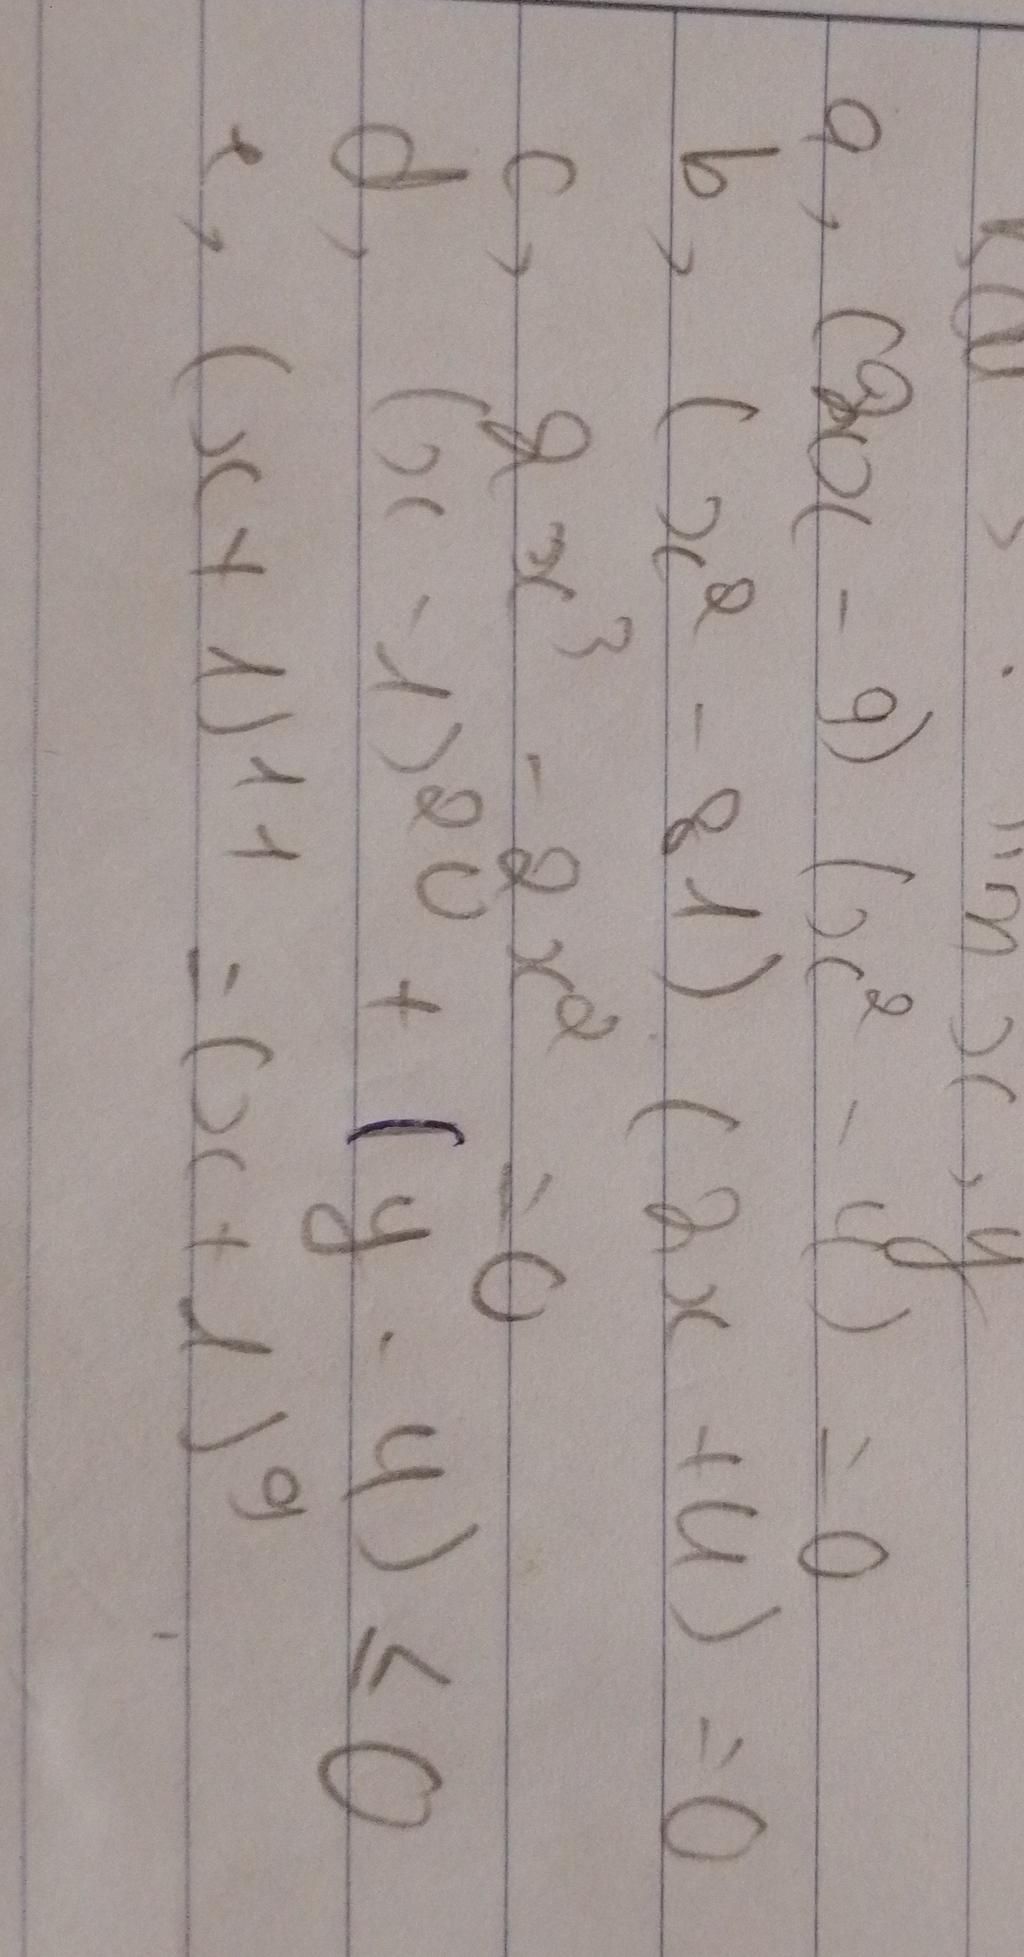 tìm x, y
a, (2x - 9) (x² - 4) = 0
b, (x² - 21) (2x + 4) = 0
c, 2x³ - 2x² = 0
d, (x - 1)²⁰ + (y - 4) ≤ 0
e, (x + 1)¹¹ = (x + 1)⁹